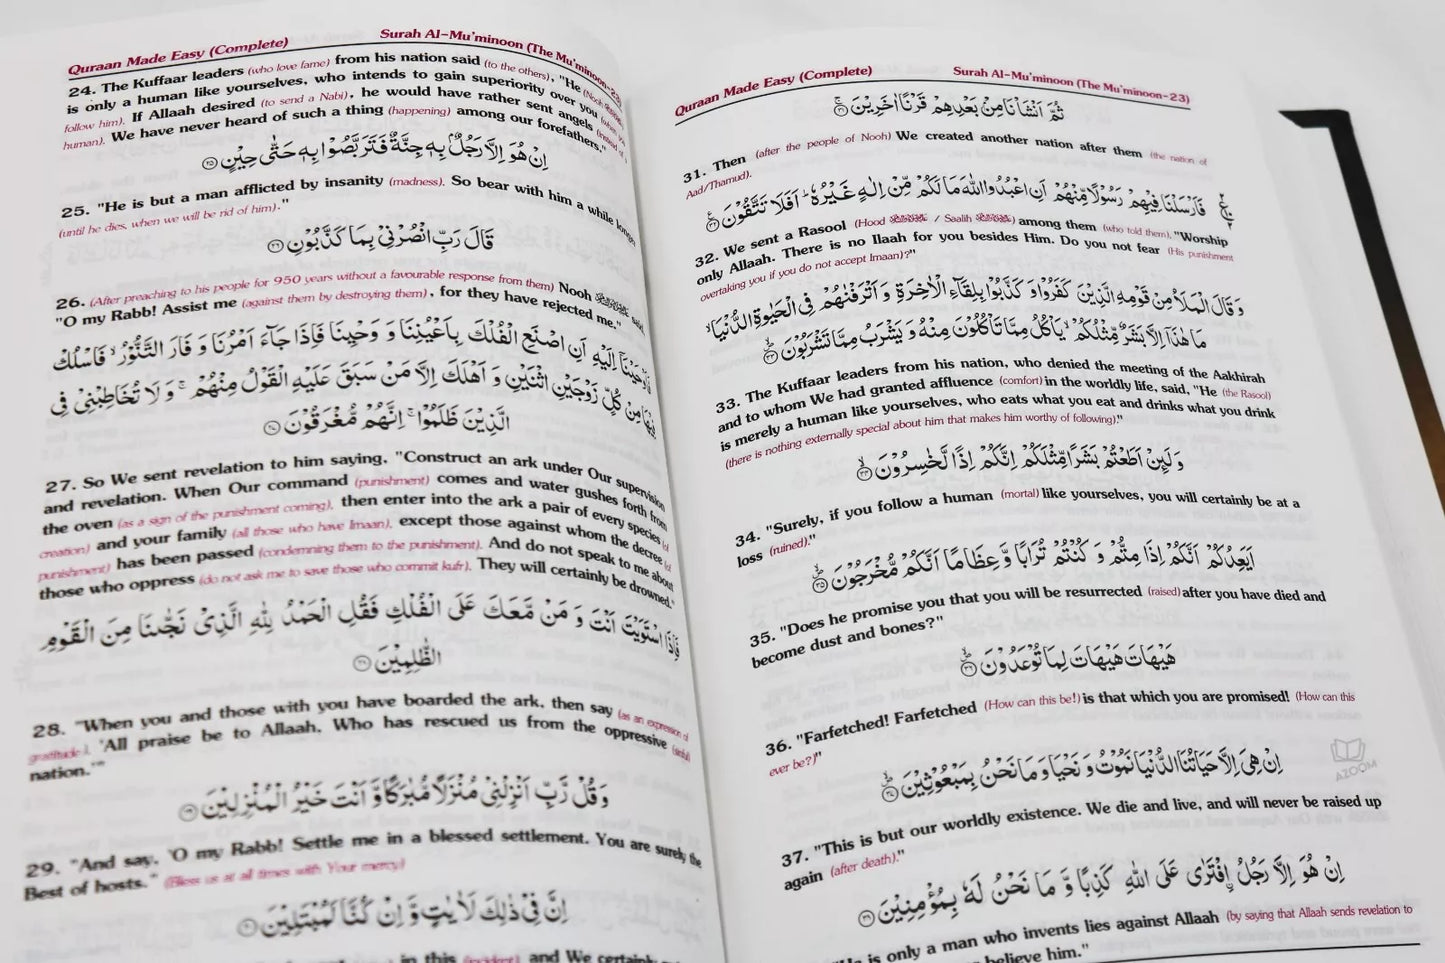 Quraan Made Easy (Complete) Surah Al-Mu'minoon (The Mu'minoon-23)
24. The Kuffaar leaders (who love fame) from his nation said (to the others), "He (Nooh
is only a human like yourselves, who intends to gain superiority over you (when you
follow him). If Allaah desired (to send a Nabi), he would have rather sent angels (instead of a
human). We have never heard of such a thing (happening) among our forefathers."
اِنْ هُوَ اِلَّا رَجُلٌۢ بِهٖ جِنَّةٌ فَتَرَبَّصُوْا بِهٖ حَتّٰى حِيْنٍ ۝٢٥
25. "He is but a man afflicted by insanity (madness). So bear with him a while longer
(until he dies, when we will be rid of him)."
قَالَ رَبِّ انْصُرْنِيْ بِمَا كَذَّبُوْنِ ۝٢٦
26. (After preaching to his people for 950 years without a favourable response from them) Nooh said,
"O my Rabb! Assist me (against them by destroying them), for they have rejected me."
فَاَوْحَيْنَآ اِلَيْهِ اَنِ اصْنَعِ الْفُلْكَ بِاَعْيُنِنَا وَ وَحْيِنَا فَاِذَا جَآءَ اَمْرُنَا وَ فَارَ التَّنُّوْرُ ۙ فَاسْلُكْ
فِيْهَا مِنْ كُلٍّ زَوْجَيْنِ اثْنَيْنِ وَ اَهْلَكَ اِلَّا مَنْ سَبَقَ عَلَيْهِ الْقَوْلُ مِنْهُمْ ۚ وَ لَا تُخَاطِبْنِيْ فِي
الَّذِيْنَ ظَلَمُوْا ۚ اِنَّهُمْ مُّغْرَقُوْنَ ۝٢٧
27. So We sent revelation to him saying, "Construct an ark under Our supervision
and revelation. When Our command (punishment) comes and water gushes forth from
the oven (as a sign of the punishment coming), then enter into the ark a pair of every species (of
creation) and your family (all those who have Imaan), except those against whom the decree (of
punishment) has been passed (condemning them to the punishment). And do not speak to me about
those who oppress (do not ask me to save those who commit kufr). They will certainly be drowned."
فَاِذَا اسْتَوَيْتَ اَنْتَ وَ مَنْ مَّعَكَ عَلَى الْفُلْكِ فَقُلِ الْحَمْدُ لِلّٰهِ الَّذِيْ نَجّٰىنَا مِنَ الْقَوْمِ
الظّٰلِمِيْنَ ۝٢٨
28. "When you and those with you have boarded the ark, then say (as an expression of
gratitude), 'All praise be to Allaah, Who has rescued us from the oppressive (sinful)
nation.'"
وَ قُلْ رَّبِّ اَنْزِلْنِيْ مُنْزَلًا مُّبٰرَكًا وَّ اَنْتَ خَيْرُ الْمُنْزِلِيْنَ ۝٢٩
29. "And say, 'O my Rabb! Settle me in a blessed settlement. You are surely the
Best of hosts." (Bless us at all times with Your mercy)
اِنَّ فِيْ ذٰلِكَ لَاٰيٰتٍ وَّ اِنْ كُنَّا لَمُبْتَلِيْنَ ۝٣٠
in this (incident) and We certainly
Quraan Made Easy (Complete) Surah Al-Mu'minoon (The Mu'minoon-23)
ثُمَّ اَنْشَاْنَا مِنْۢ بَعْدِهِمْ قَرْنًا اٰخَرِيْنَ ۝٣١
31. Then (after the people of Nooh) We created another nation after them (the nation of
Aad/Thamud).
فَاَرْسَلْنَا فِيْهِمْ رَسُوْلًا مِّنْهُمْ اَنِ اعْبُدُوا اللّٰهَ مَا لَكُمْ مِّنْ اِلٰهٍ غَيْرُهٗ ؕ اَفَلَا تَتَّقُوْنَ ۝٣٢
32. We sent a Rasool (Hood / Saalih) among them (who told them), "Worship
only Allaah. There is no Ilaah for you besides Him. Do you not fear (His punishment
overtaking you if you do not accept Imaan)?"
وَ قَالَ الْمَلَاُ مِنْ قَوْمِهِ الَّذِيْنَ كَفَرُوْا وَ كَذَّبُوْا بِلِقَآءِ الْاٰخِرَةِ وَ اَتْرَفْنٰهُمْ فِي الْحَيٰوةِ الدُّنْيَا ۙ
مَا هٰذَآ اِلَّا بَشَرٌ مِّثْلُكُمْ ۙ يَاْكُلُ مِمَّا تَاْكُلُوْنَ مِنْهُ وَ يَشْرَبُ مِمَّا تَشْرَبُوْنَ ۝٣٣
33. The Kuffaar leaders from his nation, who denied the meeting of the Aakhirah
and to whom We had granted affluence (comfort) in the worldly life, said, "He (the Rasool)
is merely a human like yourselves, who eats what you eat and drinks what you drink
(there is nothing externally special about him that makes him worthy of following)."
وَ لَىِٕنْ اَطَعْتُمْ بَشَرًا مِّثْلَكُمْ اِنَّكُمْ اِذًا لَّخٰسِرُوْنَ ۝٣٤
34. "Surely, if you follow a human (mortal) like yourselves, you will certainly be at a
loss (ruined)."
اَيَعِدُكُمْ اَنَّكُمْ اِذَا مِتُّمْ وَ كُنْتُمْ تُرَابًا وَّ عِظَامًا اَنَّكُمْ مُّخْرَجُوْنَ ۝٣٥
35. "Does he promise you that you will be resurrected (raised) after you have died and
become dust and bones?"
هَيْهَاتَ هَيْهَاتَ لِمَا تُوْعَدُوْنَ ۝٣٦
36. "Farfetched! Farfetched (How can this be!) is that which you are promised! (How can this
ever be?)"
اِنْ هِيَ اِلَّا حَيَاتُنَا الدُّنْيَا نَمُوْتُ وَ نَحْيَا وَ مَا نَحْنُ بِمَبْعُوْثِيْنَ ۝٣٧
37. "This is but our worldly existence. We die and live, and will never be raised up
again (after death)."
اِنْ هُوَ اِلَّا رَجُلُ ِۨافْتَرٰى عَلَى اللّٰهِ كَذِبًا وَّ مَا نَحْنُ لَهٗ بِمُؤْمِنِيْنَ ۝٣٨
is only a man who invents lies against Allaah (by saying that Allaah sends revelation to
believe him."
AZOOM